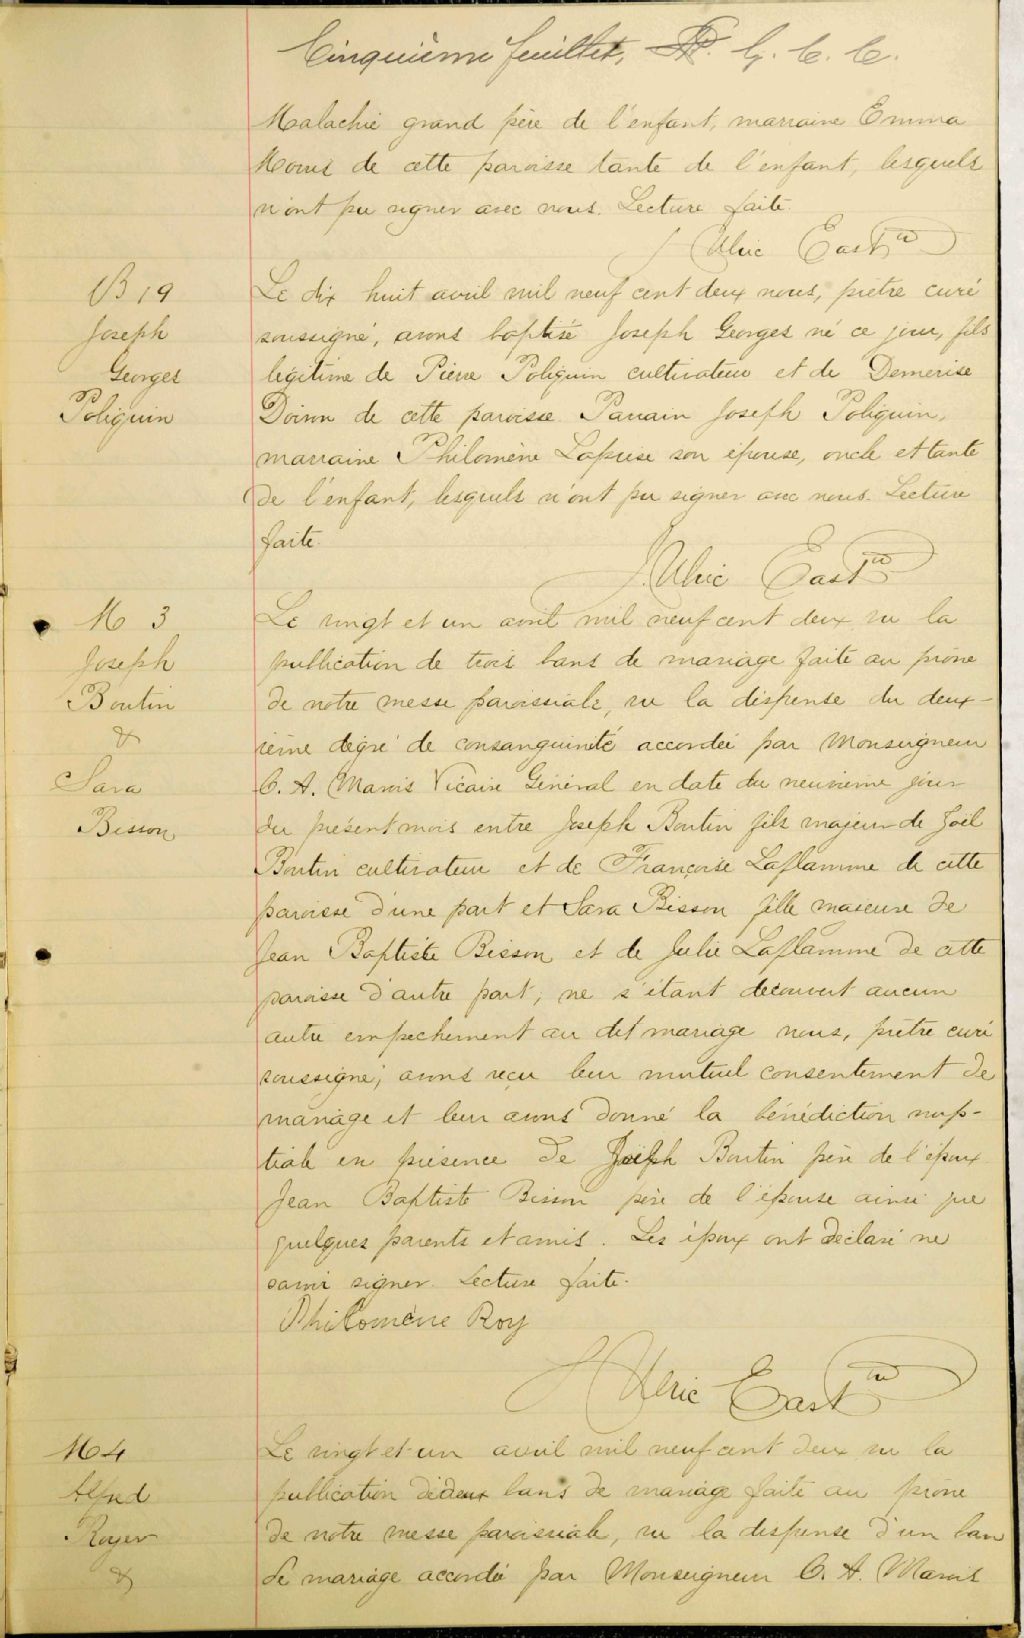 Cinquième feuillet, G. C. C.
Malachie grand père de l'enfant, marraine Emma
de cette paroisse tante de l'enfant, lesquels
n'ont pu signer avec nous. Lecture faite.
J Ulric East ptre
B 19
Joseph
Georges
Poliquin
Le dix huit avril mil neuf cent deux nous, prêtre curé
soussigné, avons baptisé Joseph Georges né ce jour, fils
légitime de Pierre Poliquin cultivateur et de Demerise
Doiron de cette paroisse. Parrain Joseph Poliquin,
marraine Philomène Laprise son épouse, oncle et tante
de l'enfant, lesquels n'ont pu signer avec nous. Lecture
faite.
J. Ulric East ptre
M 3
Joseph
Boutin
&
Sara
Bisson
Le vingt et un avril mil neuf cent deux vu la
publication de trois bans de mariage faite au prône
de notre messe paroissiale, vu la dispense du deux-
ième degré de consanguinité accordée par Monseigneur
C. A. Marois Vicaire Général en date du neuvième jour
du présent mois entre Joseph Boutin fils majeur de Joël
Boutin cultivateur et de Françoise Laflamme de cette
paroisse d'une part et Sara Bisson fille majeure de
Jean Baptiste Bisson et de Julie Laflamme de cette
paroisse d'autre part, ne s'étant découvert aucun
autre empêchement au dit mariage nous, prêtre curé
soussigné, avons reçu leur mutuel consentement de
mariage et leur avons donné la bénédiction nup-
tiale en présence de Boutin père de l'époux
Jean Baptiste Bisson père de l'épouse ainsi que
quelques parents et amis. Les époux ont déclaré ne
savoir signer. Lecture faite.
Philomène Roy
J Ulric East ptre
M 4
Alfred
Royer
&
Le vingt et un avril mil neuf cent deux vu la
publication de deux bans de mariage faite au prône
de notre messe paroissiale, vu la dispense d'un ban
de mariage accordée par Monseigneur C. A. Marois